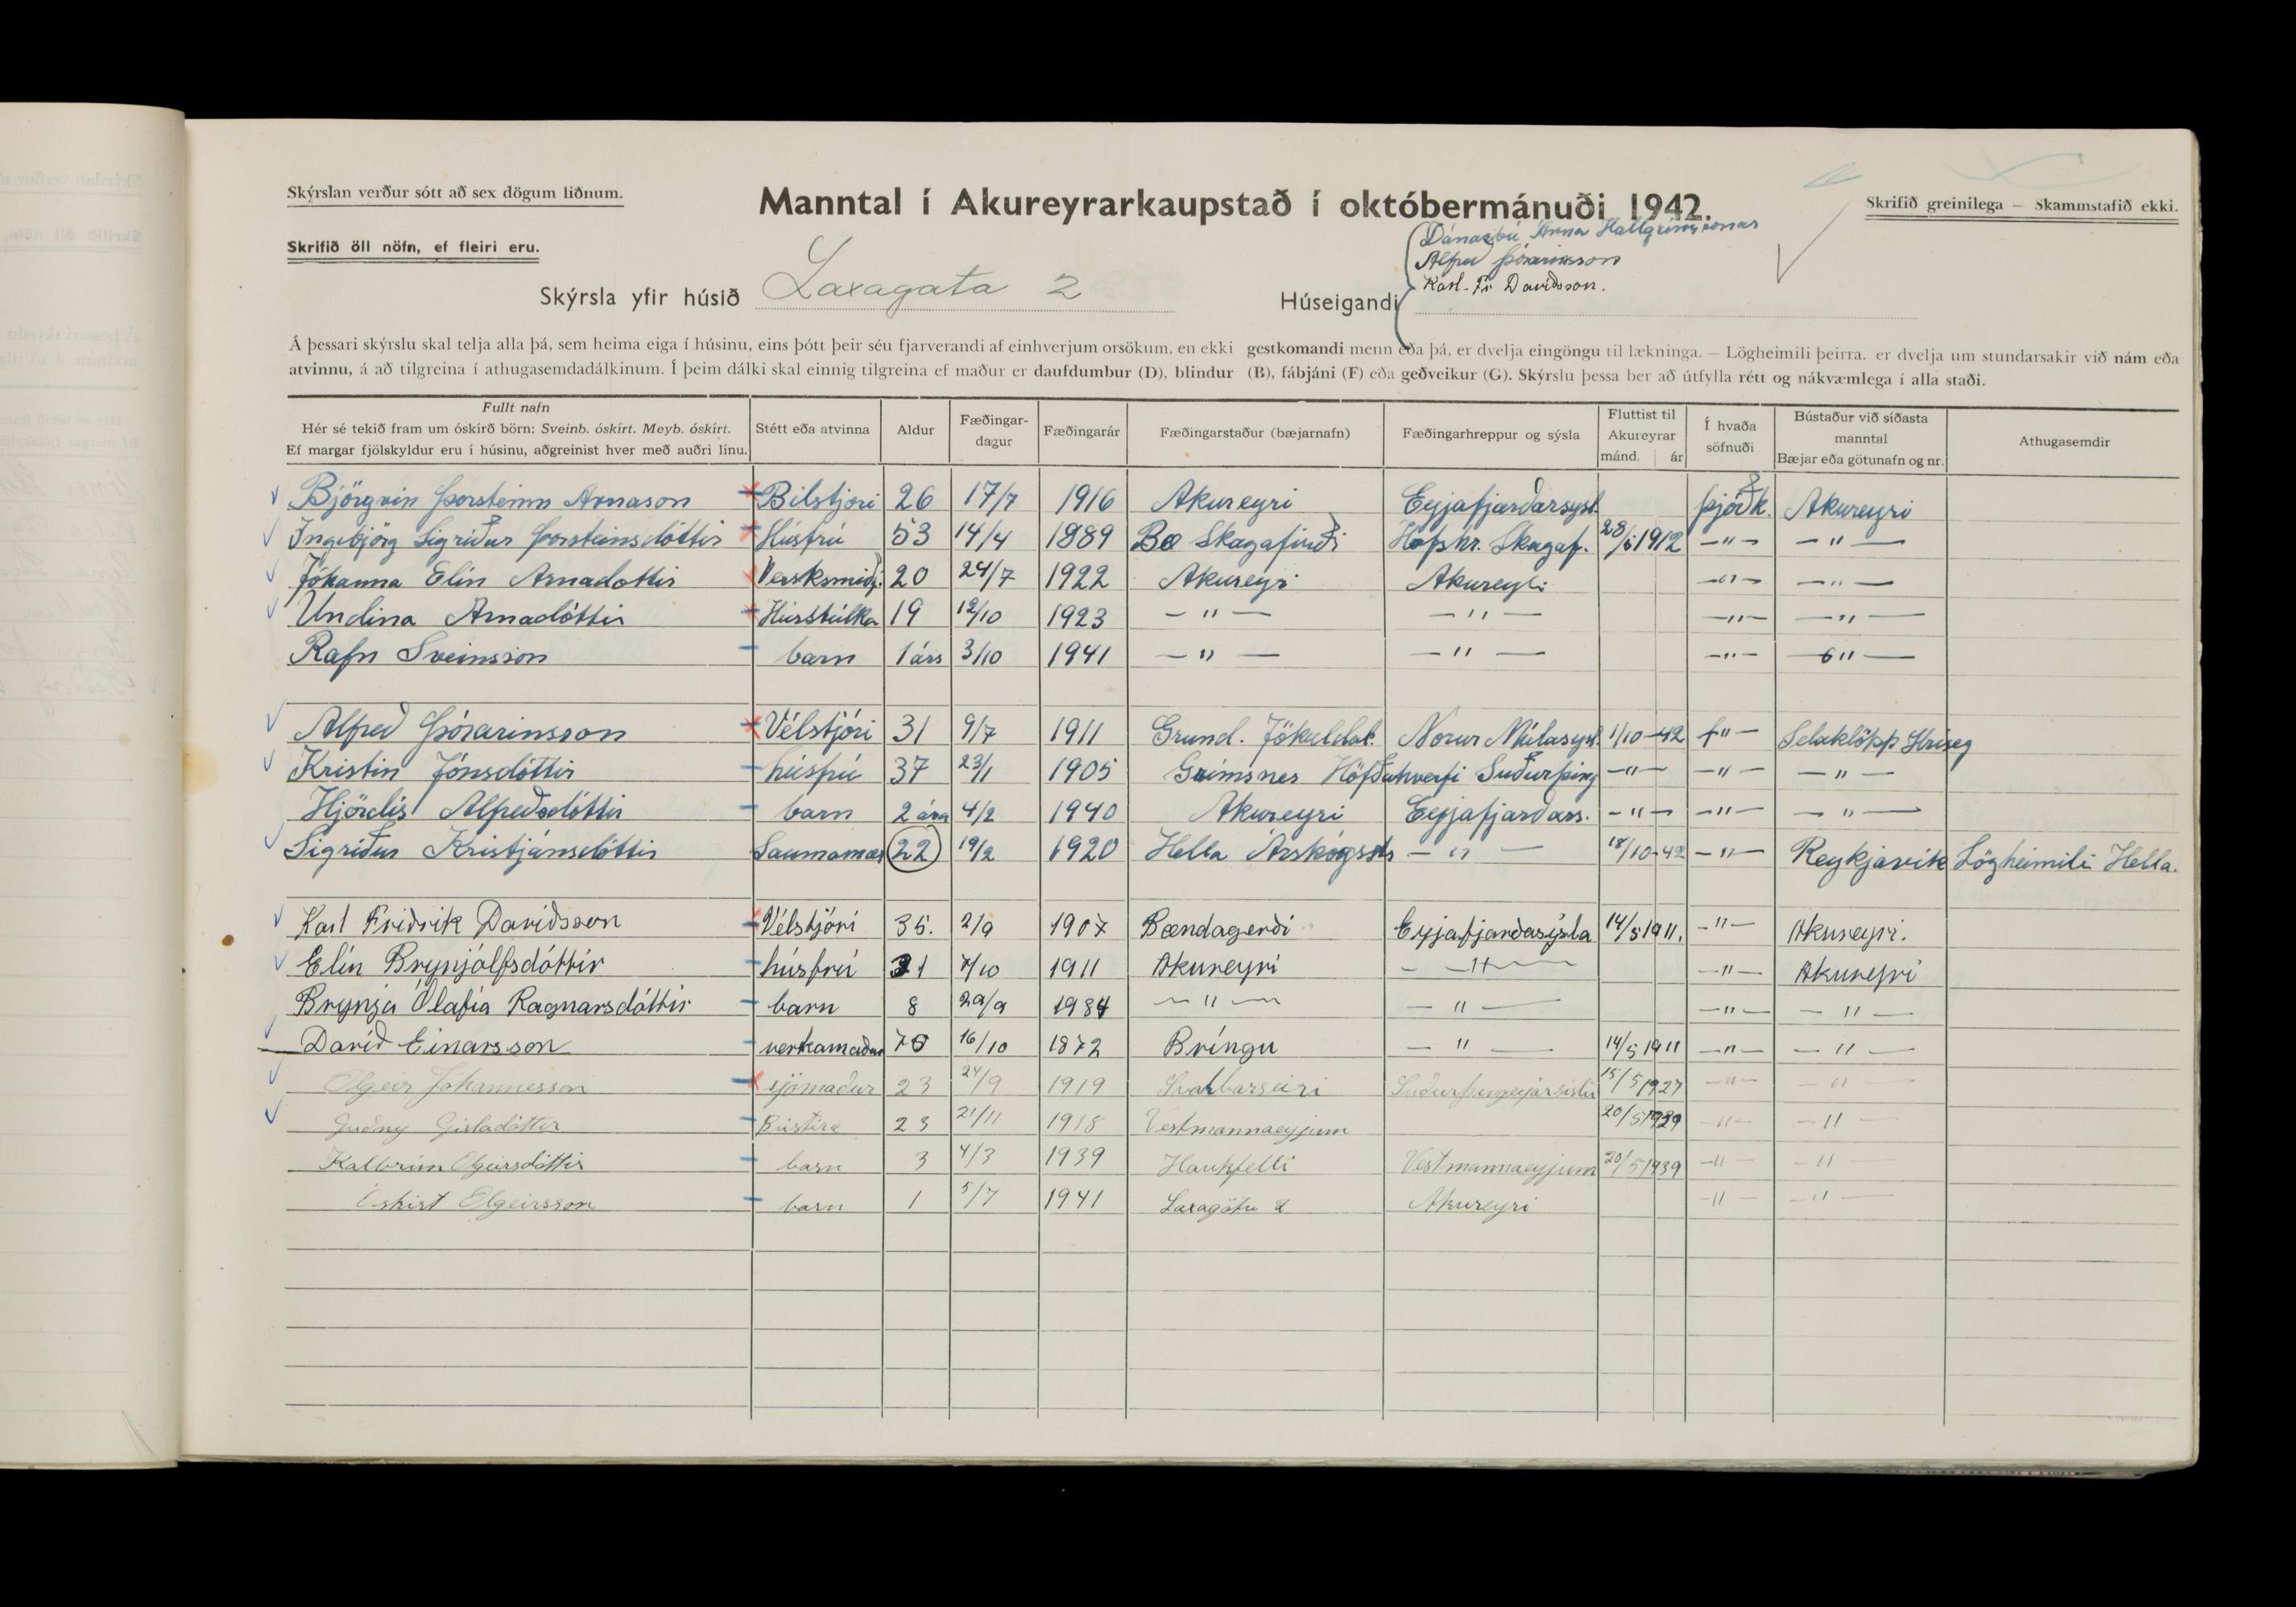 Skýrslan verður sótt að sex dögum liðnum.
Manntal í Akureyrarkaupstað í októbermánuði 1942.
Skrifið greinilega — Skammstafið ekki.
Skrifið öll nöfn, ef fleiri eru.
Dánarbú Árna Hallgrímssonar
Alfreð Þórarinsson
Karl. Fr. Davíðsson.
Skýrsla yfir húsið Laxagata 2 Húseigandi
Á þessari skýrslu skal telja alla þá, sem heima eiga í húsinu, eins þótt þeir séu fjarverandi af einhverjum orsökum, en ekki gestkomandi menn eða þá, er dvelja eingöngu til lækninga. — Lögheimili þeirra. er dvelja um stundarsakir við nám eða
atvinnu, á að tilgreina í athugasemdadálkinum. Í þeim dálki skal einnig tilgreina ef maður er daufdumbur (D), blindur (B), fábjáni (F) eða geðveikur (G). Skýrslu þessa ber að útfylla rétt og nákvæmlega í alla staði.
Fullt nafn
Hér sé tekið fram um óskírð börn: Sveinb. óskírt. Meyb. óskírt.
Ef margar fjölskyldur eru í húsinu, aðgreinist hver með auðri línu.
Stétt eða atvinna
Aldur
Fæðingar-
dagur
Fæðingarár
Fæðingarstaður (bæjarnafn)
Fæðingarhreppur og sýsla
Fluttist til
Akureyrar
mánd. ár
Í hvaða
söfnuði
Bústaður við síðasta
manntal
Bæjar eða götunafn og nr.
Athugasemdir
Björgvin Þorsteinn Árnason Bílstjóri 26 17/7 1916 Akureyri Eyjafjarðarsysl. Þjóðk. Akureyri
Ingibjörg Sigríður Þorsteinsdóttir Húsfrú 53 14/4 1889 Bæ Skagafirði Hofshr. Skagaf. 28/5 1912 — " — — " —
Jóhanna Elín Árnadottir Verksmiðj. 20 24/7 1922 Akureyri Akureyri — " — — " —
Undína Árnadóttir Hússtúlka 19 12/10 1923 — " — — " — — " — — " —
Rafn Sveinsson barn 1 árs 3/10 1941 — " — — " — — " — — " —
Alfreð Þórarinsson Vélstjóri 31 9/7 1911 Grund. Jökuldal. Norur Múlasysl. 1/10-42 — " — Selaklöpp Hrísey
Kristín Jónsdóttir húsfrú 37 23/1 1905 Grímsnes Höfðahverfi Suðurþing — " — — " — — " —
Hjördís Alfreðsdóttir barn 2 ára 4/2 1940 Akureyri Eyjafjarðars. — " — — " — — " —
Sigríður Kristjánsdóttir Saumamær 22 19/2 1920 Hella Árskógsstr — " — 18/10-42 — " — Reykjavík Lögheimili Hella.
Karl Friðrik Davíðsson Vélstjóri 35. 2/9 1907 Bændagerði Eyjafjarðasýsla 14/5 1911. — " — Akureyri.
Elín Brynjólfsdóttir húsfrú 31 7/10 1911 Akureyri — " — — " — Akureyri
Brynja Ólafía Ragnarsdóttir barn 8 29/9 1934 — " — — " — — " — — " —
Davíð Einarsson verkamaður 70 16/10 1872 Bringu — " — 14/5 1911 — " — — " —
Olgeir Jóhannesson sjómaður 23 24/9 1919 Svalbarseiri Suðurþingeyjarsislu 15/5 1927 — " — — " —
Guðny Gisladóttir Bústira 23 21/11 1918 Vestmannaeyjum 20/5 1939 — " — — " —
Kolbrún Olgeirsdóttir barn 3 4/3 1939 Haukfelli Vestmannaeyjum 20/5 1939 — " — — " —
Óskírt Olgeirsson barn 1 5/7 1941 Laxagötu 2 Akureyri — " — — " —